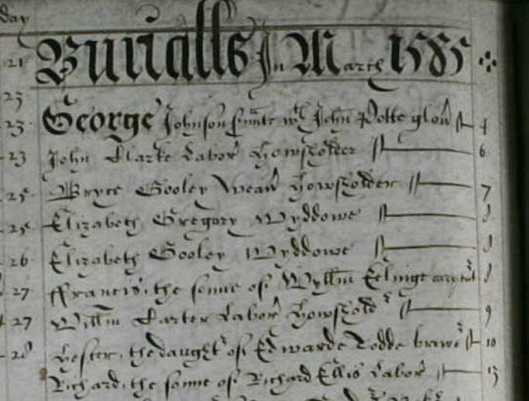 day
21 Burialls In March 1585
23
23 George Johnson servãte wth John Potte glou 4
23 John Clarke Labor howsholder 6
25 Bryce Cooley Weav howsholder 7
25 Elizabeth Gregory Wyddowe 8
26 Elizabeth Cooley Wyddowe 8
27 ffrancis, the sonne of Wyllm 8
27 Willm Carter Labor howshold 9
28 Hester, the daught of Edwarde Dodde 10
Richard, the sonne of Richard Ellis Labor 13